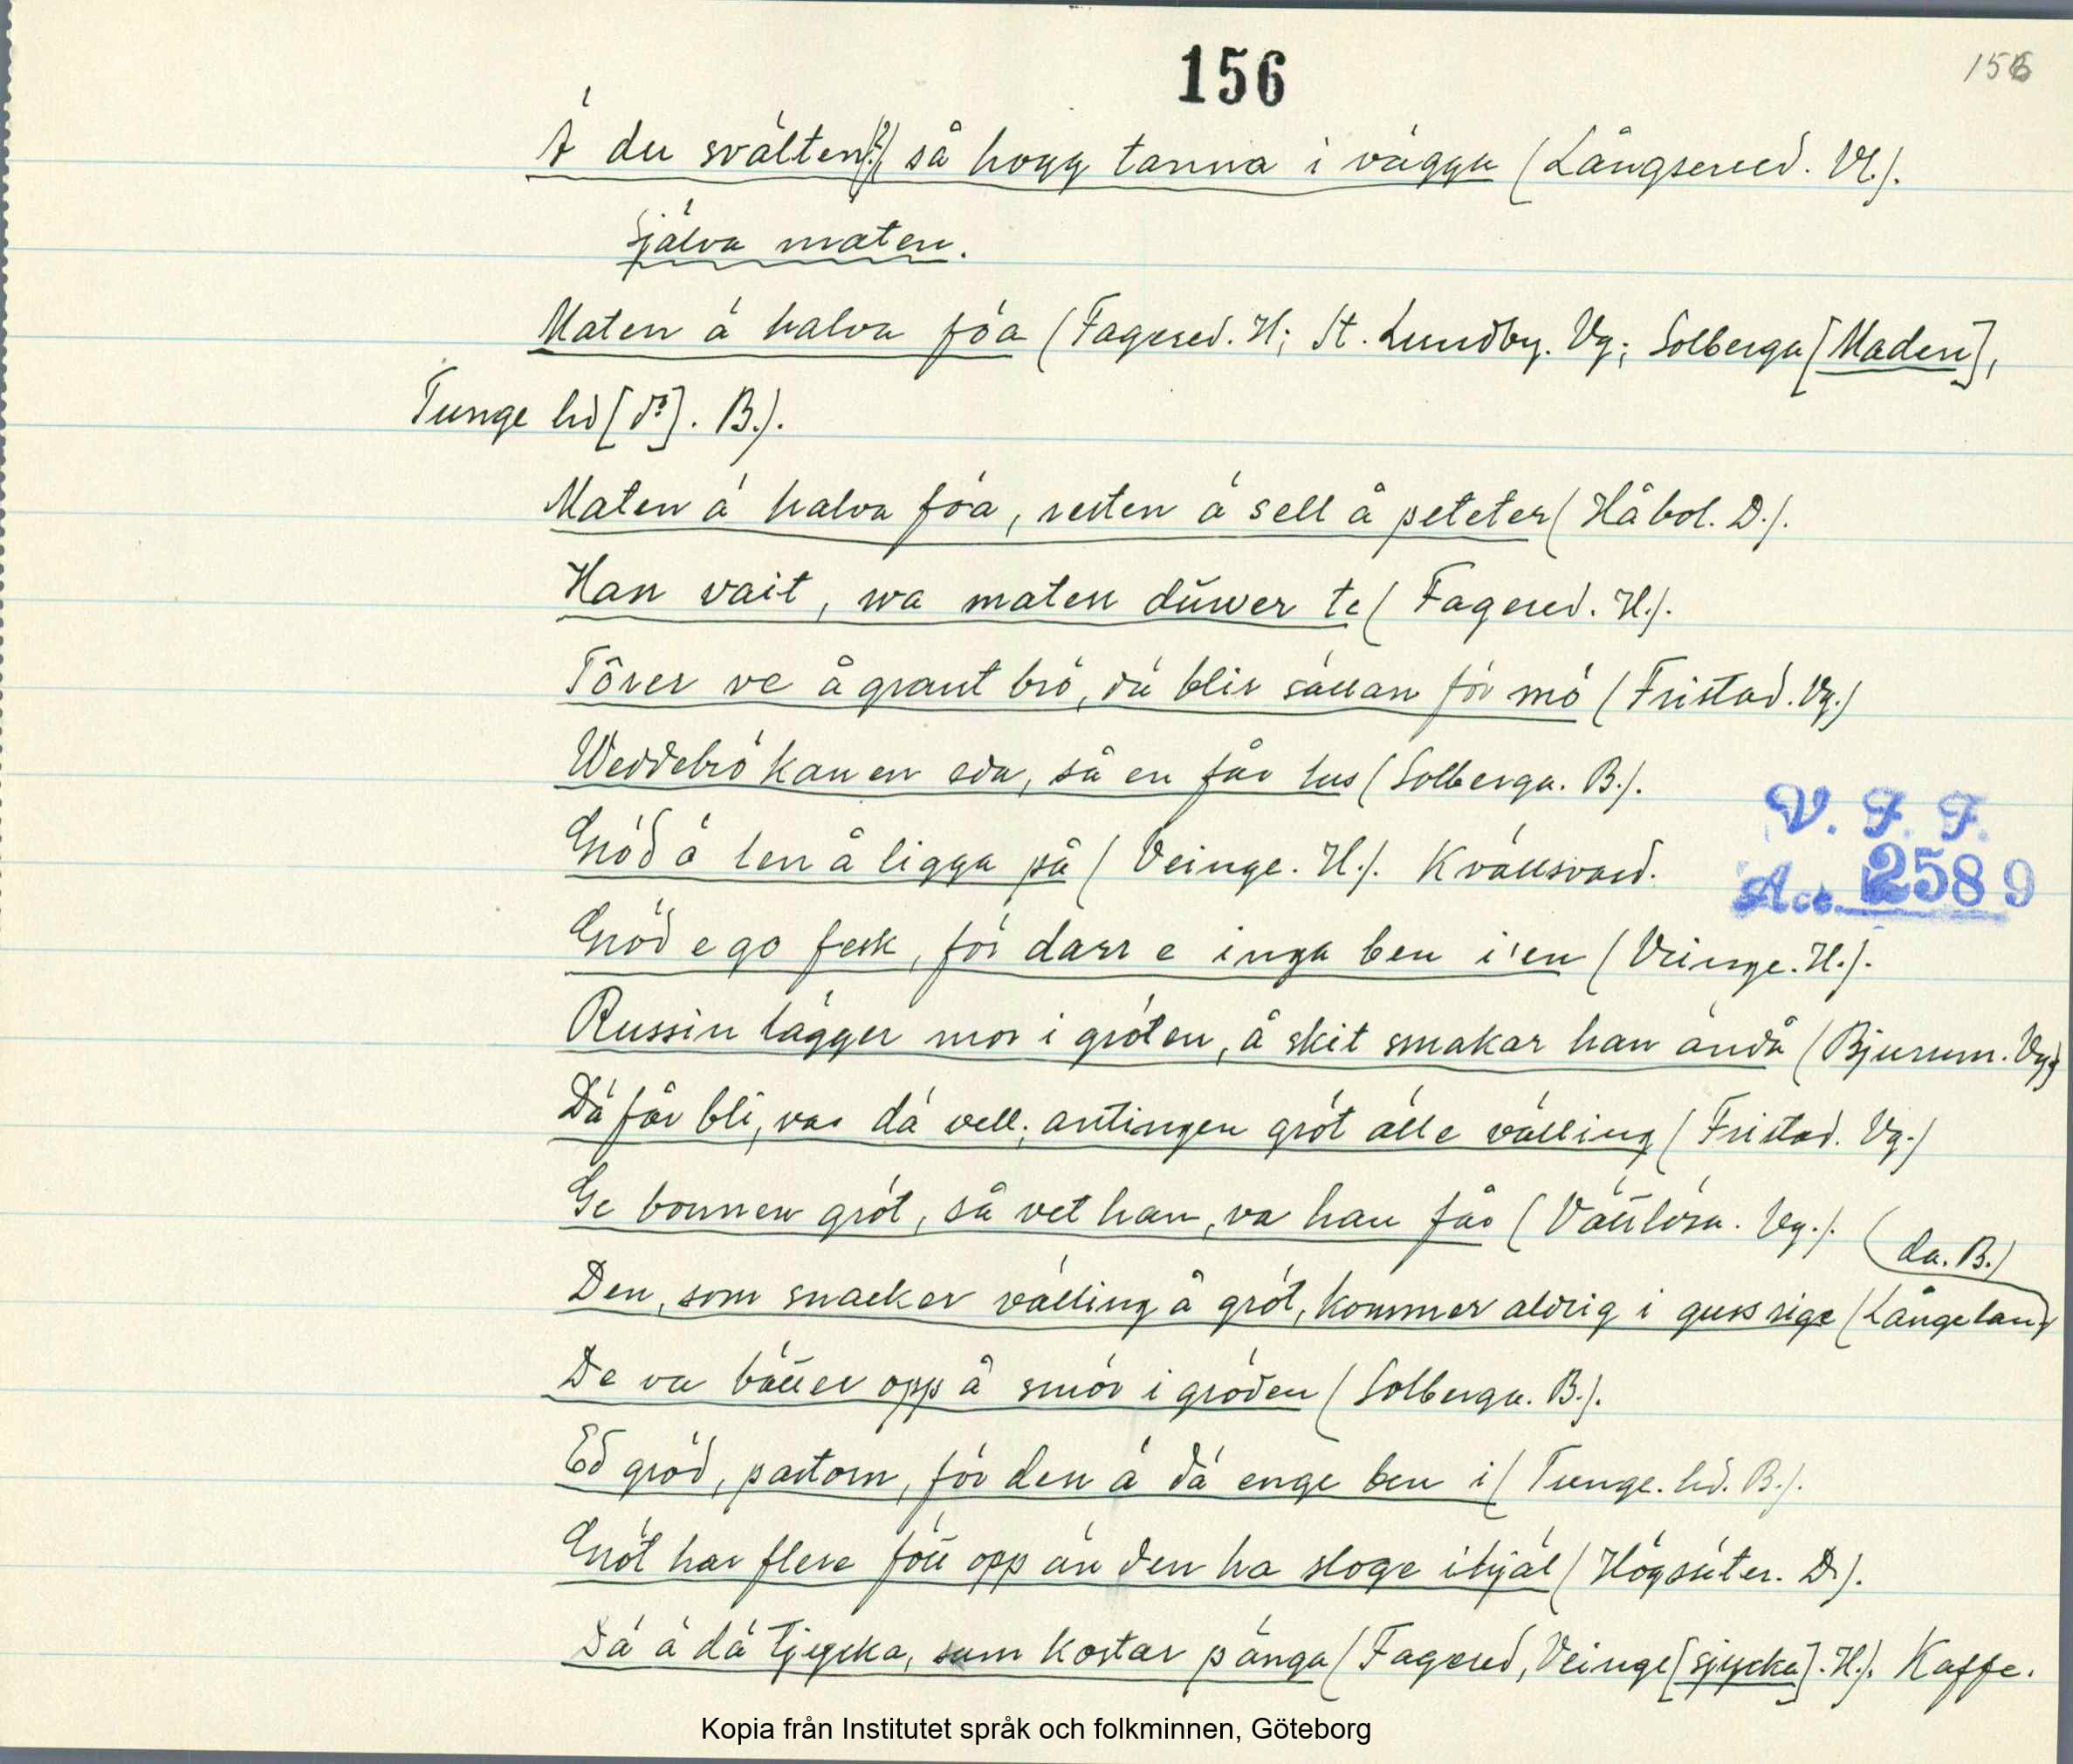 156
156
Ä du svälten(?), så hogg tanna i vägga (Långsered. Vg.).
Själva maten.
Maten ä halva föa (Fagered. H; St. Lundby. Vg; Solberga [Maden],
Tunge hd [do]. B.).
Maten ä halva föa, resten ä sell å peteter (Håbol. D.).
Han vait, va maten duwer te (Fagered. H.).
Törer ve å grant brö, dä blir sällan för mö (Fristad. Vg.)
Weddebrö kan en eda, så en får lus (Solberga. B.).
Gröd ä len å ligga på (Veinge. H.). Kvällsvard.
Gröd e go fesk, för darr e inga ben i'en (Veinge. H.).
Russin lägger mor i gröten, å skit smakar han ändå (Bjurum. Vg.)
Dä får bli, var dä vell, antingen gröt älle välling (Fristad. Vg.)
Ge bonnen gröt, så vet han, va han får (Vättlösa. Vg.).
Den, som snacker välling å gröt, kommer aldrig i guss rige (Långelanda. B.)
De va bätter opp å smör i gröden (Solberga. B.).
Ed gröd, pastorn, för den ä dä enge ben i (Tunge. hd. B.).
Gröt har flere fött opp än den ha sloge ihjäl (Högsäter. D.).
Dä ä dä tjycka, sum kostar pänga (Fagered, Veinge [sjycka]. H.). Kaffe.
V. F. F.
Acc. 2589
Kopia från Institutet språk och folkminnen, Göteborg